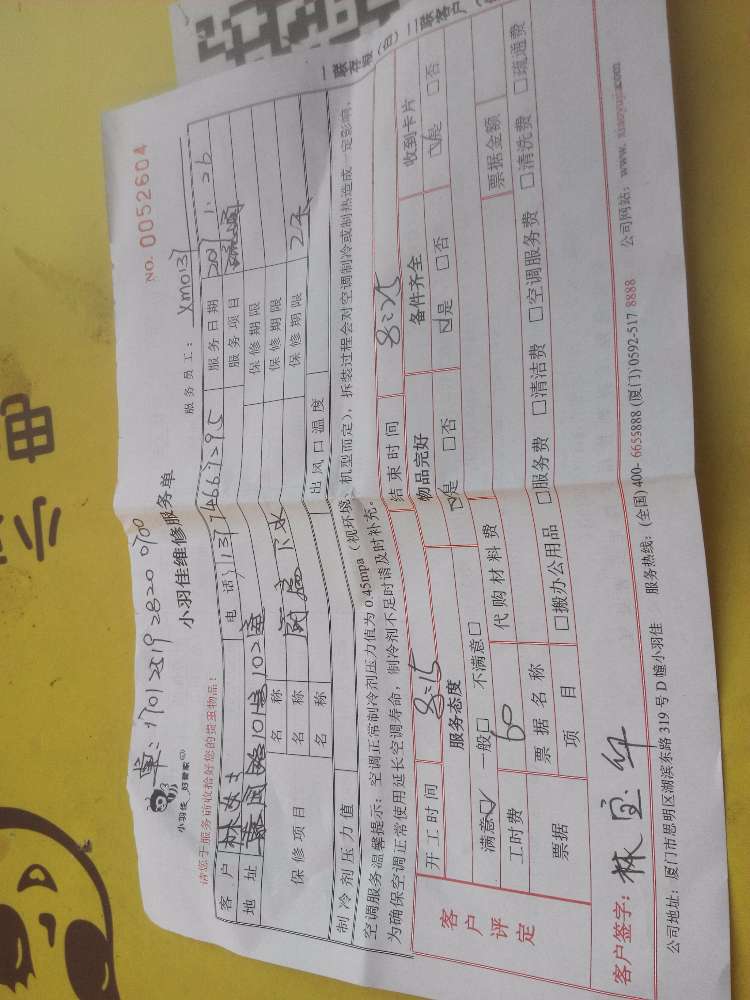 一联存根（白）二联客户（
NO. 0052604
单：17012519282000
小羽佳 好管家
小羽佳维修服务单
服务员工：XM0131
请您于服务前收拾好您的贵重物品！
客户 林女士 电话 服务日期
地址 服务项目 疏通
保修项目 名称 保修期限
名称 厨房下水 保修期限
名称 保修期限 2天
制冷剂压力值 出风口温度
空调服务温馨提示：空调正常制冷剂压力值为 0.45mpa（视环境、机型而定），拆装过程会对空调制冷或制热造成一定影响，
为确保空调正常使用延长空调寿命，制冷剂不足时请及时补充。
客户评定
开工时间 8:15 结束时间 8:25
服务态度 物品完好 备件齐全 收到卡片
满意☑ 一般□ 不满意□ ☑是 □否 ☑是 □否 ☑是 □否
工时费 60 代购材料费 票据金额
票据 票据名称
项目 □搬办公用品 □服务费 □清洁费 □空调服务费 □清洗费 □疏通费
客户签字：林宝华
公司地址：厦门市思明区湖滨东路 319 号 D 幢小羽佳 服务热线：(全国) 400- 6655888 (厦门) 0592-517 8888 公司网站：www. xiaoyujia.com